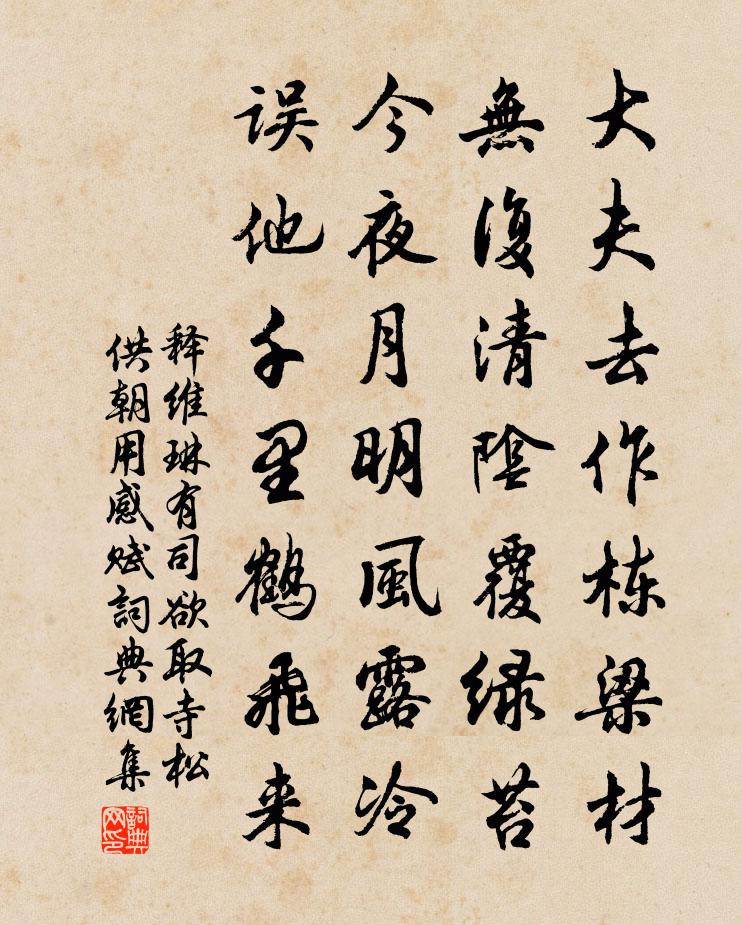 大夫去作栋梁材
無復清陰覆绿苔
今夜月明風露冷
误他千里鶴飛来
释維琳有司欲取寺松
供朝用感赋詞典網集
詞典网印